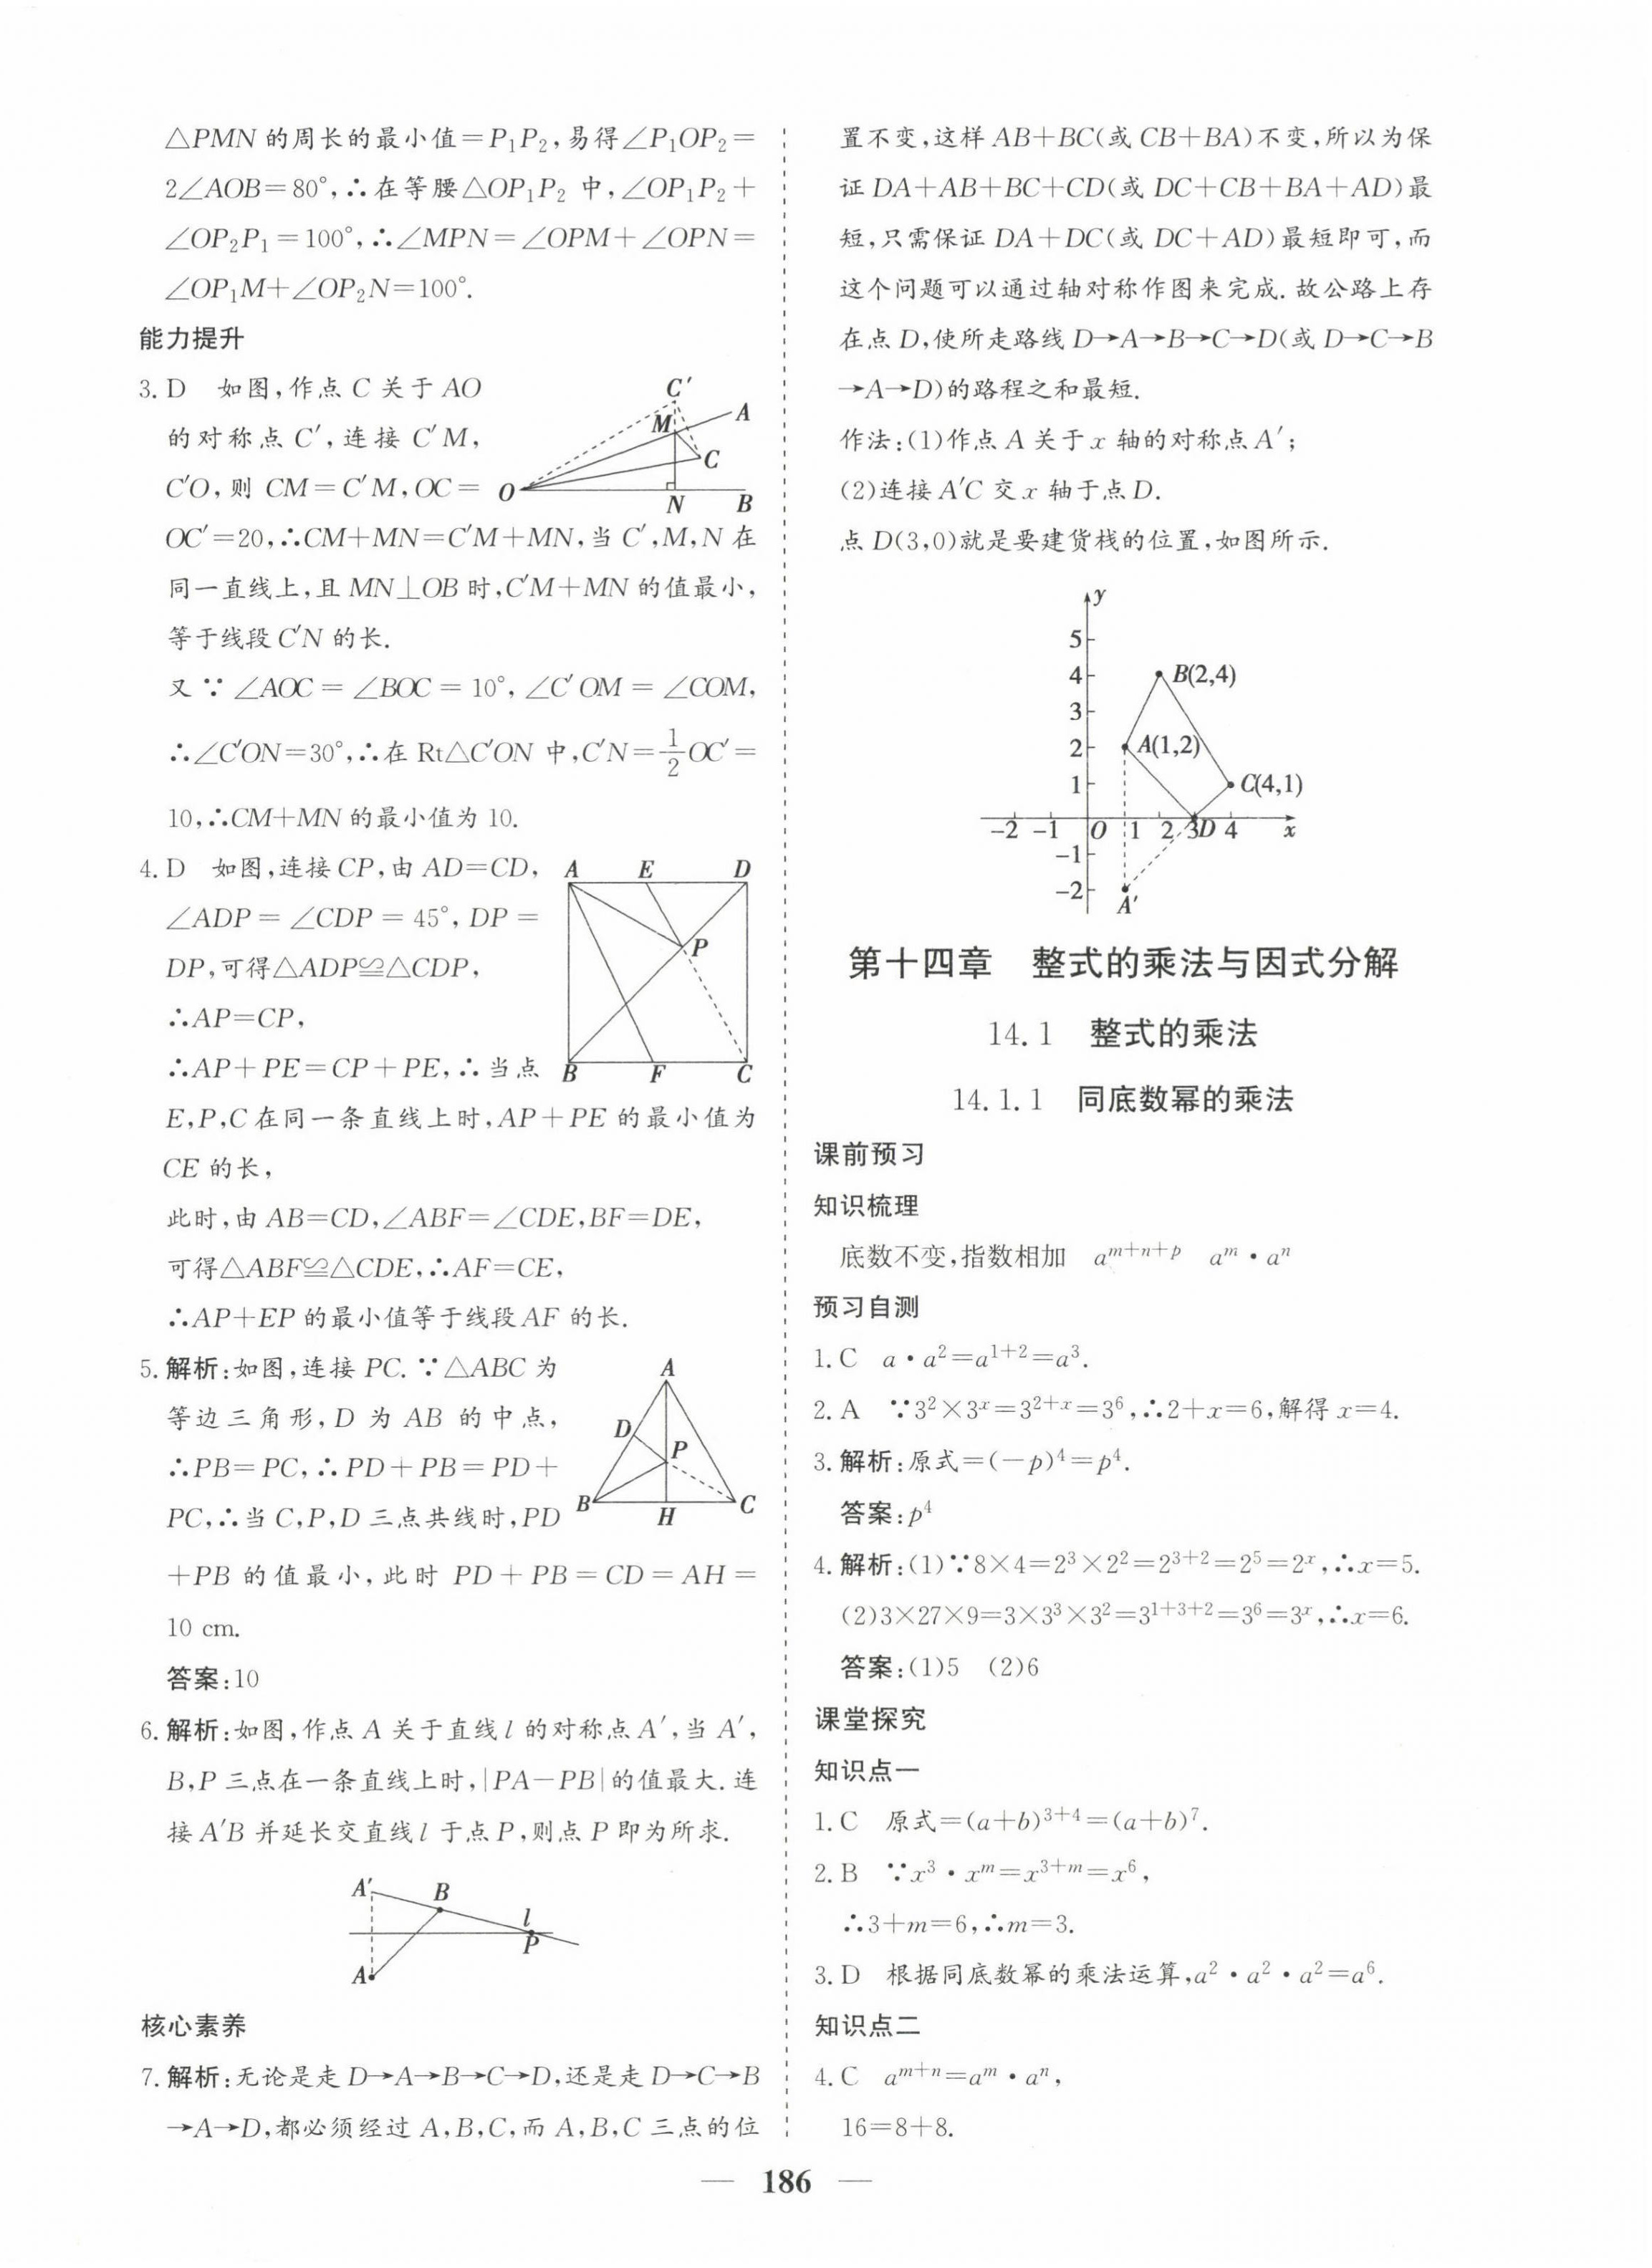 △PMN 的周长的最小值=P₁P₂,易得∠P₁OP₂=
2∠AOB=80°,∴在等腰△OP₁P₂ 中,∠OP₁P₂+
∠OP₂P₁=100°,∴∠MPN=∠OPM+∠OPN=
∠OP₁M+∠OP₂N=100°.
能力提升
3. D 如图,作点 C 关于 AO
的对称点 C′,连接 C′M,
C′O,则 CM=C′M,OC=
C′
A
M
C
O
N
B
OC′=20,∴CM+MN=C′M+MN,当 C′,M,N 在
同一直线上,且 MN⊥OB 时,C′M+MN 的值最小,
等于线段 C′N 的长.
又∵∠AOC=∠BOC=10°,∠C′OM=∠COM,
∴∠C′ON=30°,∴在 Rt△C′ON 中,C′N=1/2 OC′=
10,∴CM+MN 的最小值为 10.
4. D 如图,连接 CP,由 AD=CD,
∠ADP=∠CDP=45°,DP=
DP,可得△ADP≌△CDP,
∴AP=CP,
∴AP+PE=CP+PE,∴当点
A E D
P
B F C
E,P,C 在同一条直线上时,AP+PE 的最小值为
CE 的长,
此时,由 AB=CD,∠ABF=∠CDE,BF=DE,
可得△ABF≌△CDE,∴AF=CE,
∴AP+EP 的最小值等于线段 AF 的长.
5. 解析:如图,连接 PC.∵△ABC 为
等边三角形,D 为 AB 的中点,
∴PB=PC,∴PD+PB=PD+
PC,∴当 C,P,D 三点共线时,PD
A
D
P
B
H
C
+PB 的值最小,此时 PD+PB=CD=AH=
10 cm.
答案:10
6. 解析:如图,作点 A 关于直线 l 的对称点 A′,当 A′,
B,P 三点在一条直线上时,|PA-PB|的值最大.连
接 A′B 并延长交直线 l 于点 P,则点 P 即为所求.
A′ B
l
P
A
核心素养
7. 解析:无论是走 D→A→B→C→D,还是走 D→C→B
→A→D,都必须经过 A,B,C,而 A,B,C 三点的位
置不变,这样 AB+BC(或 CB+BA)不变,所以为保
证 DA+AB+BC+CD(或 DC+CB+BA+AD)最
短,只需保证 DA+DC(或 DC+AD)最短即可,而
这个问题可以通过轴对称作图来完成.故公路上存
在点 D,使所走路线 D→A→B→C→D(或 D→C→B
→A→D)的路程之和最短.
作法:(1)作点 A 关于 x 轴的对称点 A′;
(2)连接 A′C 交 x 轴于点 D.
点 D(3,0)就是要建货栈的位置,如图所示.
y
5
4 B(2,4)
3
2 A(1,2)
1 C(4,1)
-2 -1 O 1 2 3D 4 x
-1
-2
A′
第十四章 整式的乘法与因式分解
14.1 整式的乘法
14.1.1 同底数幂的乘法
课前预习
知识梳理
底数不变,指数相加 aᵐ⁺ⁿ⁺ᵖ aᵐ·aⁿ
预习自测
1. C a·a²=a¹⁺²=a³.
2. A ∵3²×3ˣ=3²⁺ˣ=3⁶,∴2+x=6,解得 x=4.
3. 解析:原式=(-p)⁴=p⁴.
答案:p⁴
4. 解析:(1)∵8×4=2³×2²=2³⁺²=2⁵=2ˣ,∴x=5.
(2)3×27×9=3×3³×3²=3¹⁺³⁺²=3⁶=3ˣ,∴x=6.
答案:(1)5 (2)6
课堂探究
知识点一
1. C 原式=(a+b)³⁺⁴=(a+b)⁷.
2. B ∵x³·xᵐ=x³⁺ᵐ=x⁶,
∴3+m=6,∴m=3.
3. D 根据同底数幂的乘法运算,a²·a²·a²=a⁶.
知识点二
4. C aᵐ⁺ⁿ=aᵐ·aⁿ,
16=8+8.
— 186 —